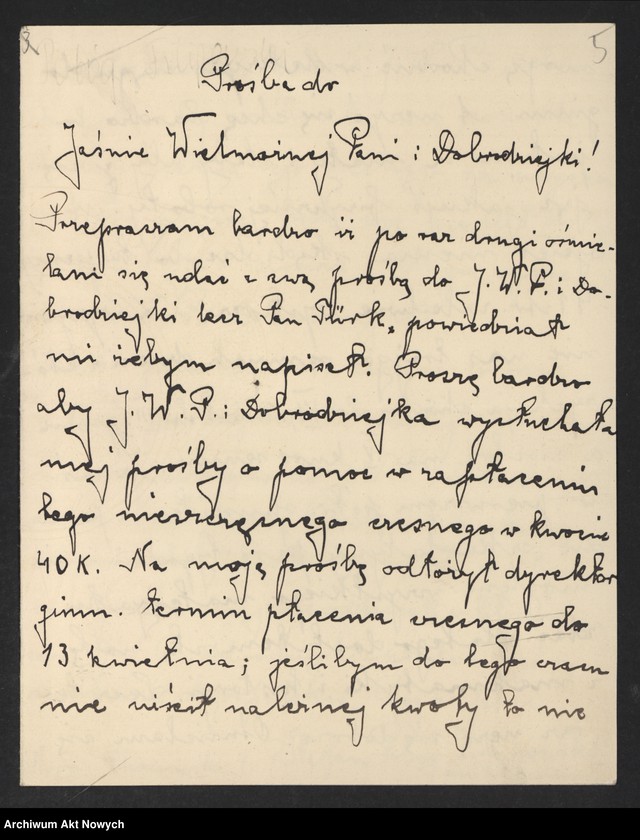 5
Prośba do
Jaśnie Wielmożnej Pani i Dobrodziejki!
Przepraszam bardzo iż po raz drugi ośmie-
lam się udać z swą prośbą do J.W.P. i Do-
brodziejki lecz Pan Türk, powiedział
mi żebym napisał. Proszę bardzo
aby J.W.P. i Dobrodziejka wysłuchała
mej prośby o pomoc w zapłaceniu
tego nieszczęsnego czesnego w kwocie
40 K. Na moją prośbę odłożył dyrektor
gimn. termin płacenia czesnego do
13 kwietnia; jeślibym do tego czasu
nie uiścił należnej kwoty to nie
Archiwum Akt Nowych